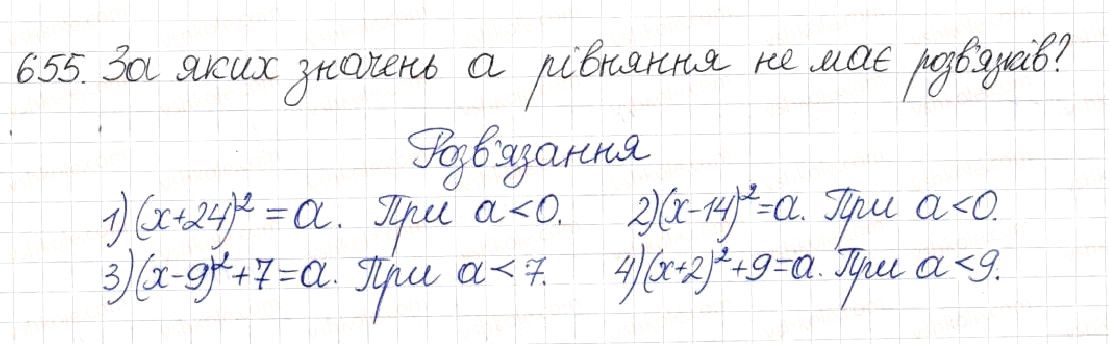 655. За яких значень а рівняння не має розв'язків?
Розв'язання
1) (x+24)² = a. При a<0. 2) (x-14)²=a. При a<0.
3) (x-9)²+7=a. При a<7. 4) (x+2)²+9=a. При a<9.